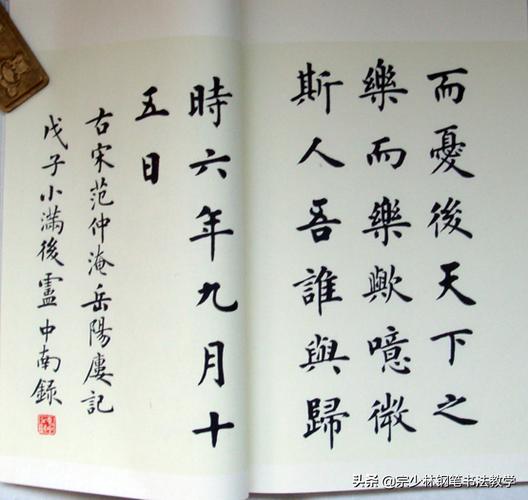 而憂後天下之
樂而樂歟噫微
斯人吾誰與歸
時六年九月十
五日
右宋范仲淹岳陽廔記
戊子小滿後盧中南錄
头条@宗少林钢笔书法教学